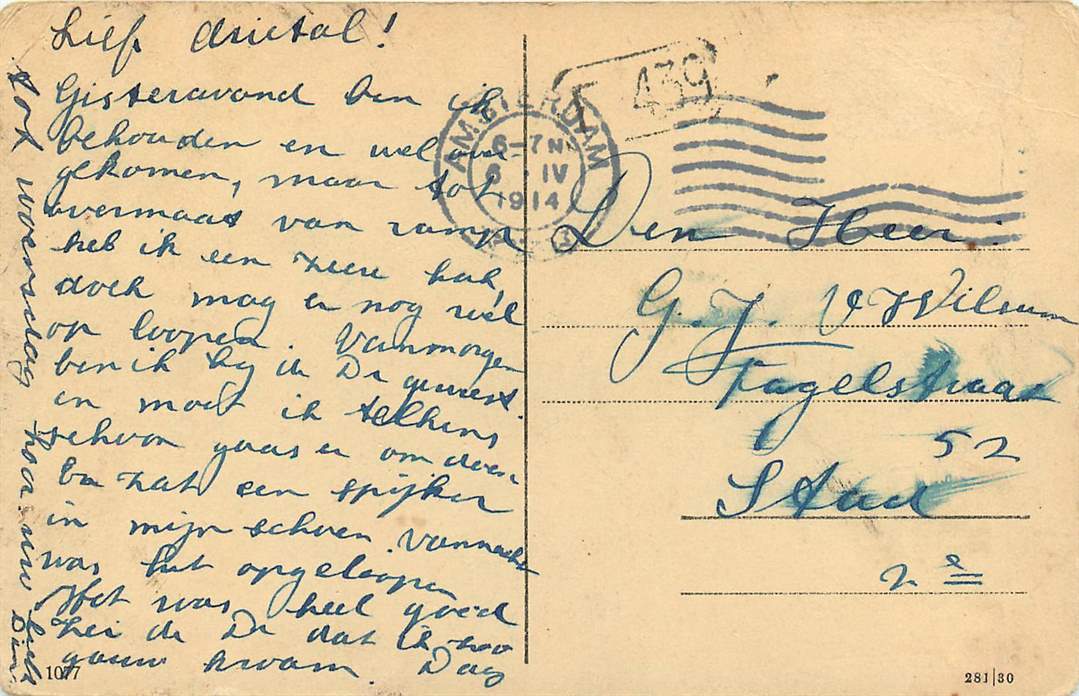 Lief drietal!
Gisteravond ben ik
behouden en wel over
gekomen, maar tot
overmaat van ramp
heb ik een zeere hak,
doch mag er nog wel
op loopen. Vanmorgen
ben ik bij de Dr geweest.
en moet ik telkens
schoon gaas er om doen
Er zat een spijker
in mijn schoen. Vannacht
was het opgeloopen
Het was heel goed
zei de Dr dat ik zoo
gauw kwam. Dag
tot woensdag hoor uw
1077
439
AMSTERDAM
6-7 N
6 IV
1914
Den Heer:
G. J. V Wilsum
Fagelstraat
52
Stad
2e
281|30